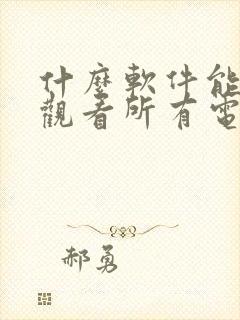 什麼軟件能
觀看所有電
郝勇